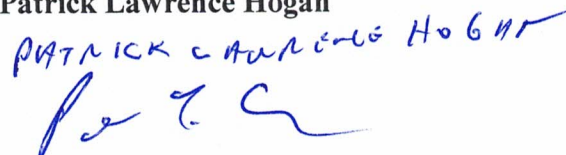 Patrick Lawrence Hogan
PATRICK LAWRENCE HOGAN